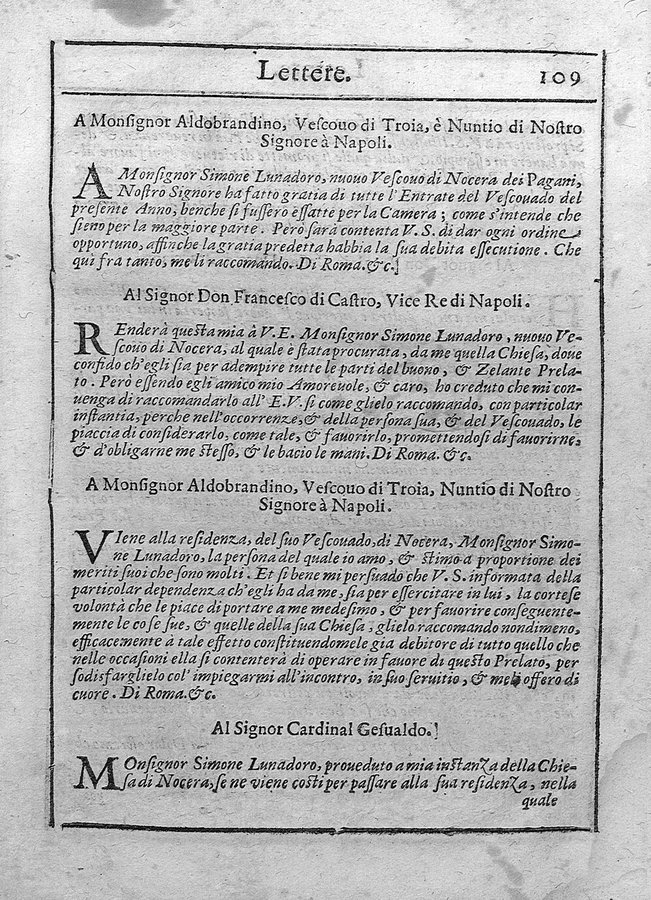 Lettere. 109
A Monſignor Aldobrandino, Veſcouo di Troia, è Nuntio di Noſtro
Signore à Napoli.
A Monſignor Simone Lunadoro, nuouo Veſcouo di Nocera dei Pagani,
Noſtro Signore ha fatto gratia di tutte l'Entrate del Veſcouado del
preſente Anno, benche ſi fuſſero eſſatte per la Camera; come s'intende che
ſieno per la maggiore parte. Però ſarà contenta V. S. di dar ogni ordine
opportuno, affinche la gratia predetta habbia la ſua debita eſſecutione. Che
qui fra tanto, me li raccomando. Di Roma. &c.
Al Signor Don Franceſco di Caſtro, Vice Re di Napoli.
REnderà queſta mia à V. E. Monſignor Simone Lunadoro, nuouo Ve-
ſcouo di Nocera, al quale è ſtata procurata, da me quella Chieſa, doue
confido ch'egli ſia per adempire tutte le parti del buono, & Zelante Prela-
to. Però eſſendo egli amico mio Amoreuole, & caro, ho creduto che mi con-
uenga di raccomandarlo all' E. V. ſi come glielo raccomando, con particolar
inſtantia, perche nell'occorrenze, & della perſona ſua, & del Veſcouado, le
piaccia di conſiderarlo, come tale, & fauorirlo, promettendoſi di fauorirne,
& d'obligarne me ſteſſo, & le bacio le mani. Di Roma. &c.
A Monſignor Aldobrandino, Veſcouo di Troia, Nuntio di Noſtro
Signore à Napoli.
VIene alla reſidenza, del ſuo Veſcouado, di Nocera, Monſignor Simo-
ne Lunadoro, la perſona del quale io amo, & ſtimo a proportione dei
meriti ſuoi che ſono molti. Et ſi bene mi perſuado che V. S. informata della
particolar dependenza ch'egli ha da me, ſia per eſſercitare in lui, la corteſe
volontà che le piace di portare a me medeſimo, & per fauorire conſeguente-
mente le coſe ſue, & quelle della ſua Chieſa, glielo raccomando nondimeno,
efficacemente à tale effetto conſtituendomele gia debitore di tutto quello che
nelle occaſioni ella ſi contenterà di operare in fauore di queſto Prelato, per
ſodisfarglielo col' impiegarmi all'incontro, in ſuo ſeruitio, & meli offero di
cuore. Di Roma. &c.
Al Signor Cardinal Geſualdo.
MOnſignor Simone Lunadoro, proueduto a mia inſtanza della Chie-
ſa di Nocera, ſe ne viene coſti per paſſare alla ſua reſidenza, nella
quale